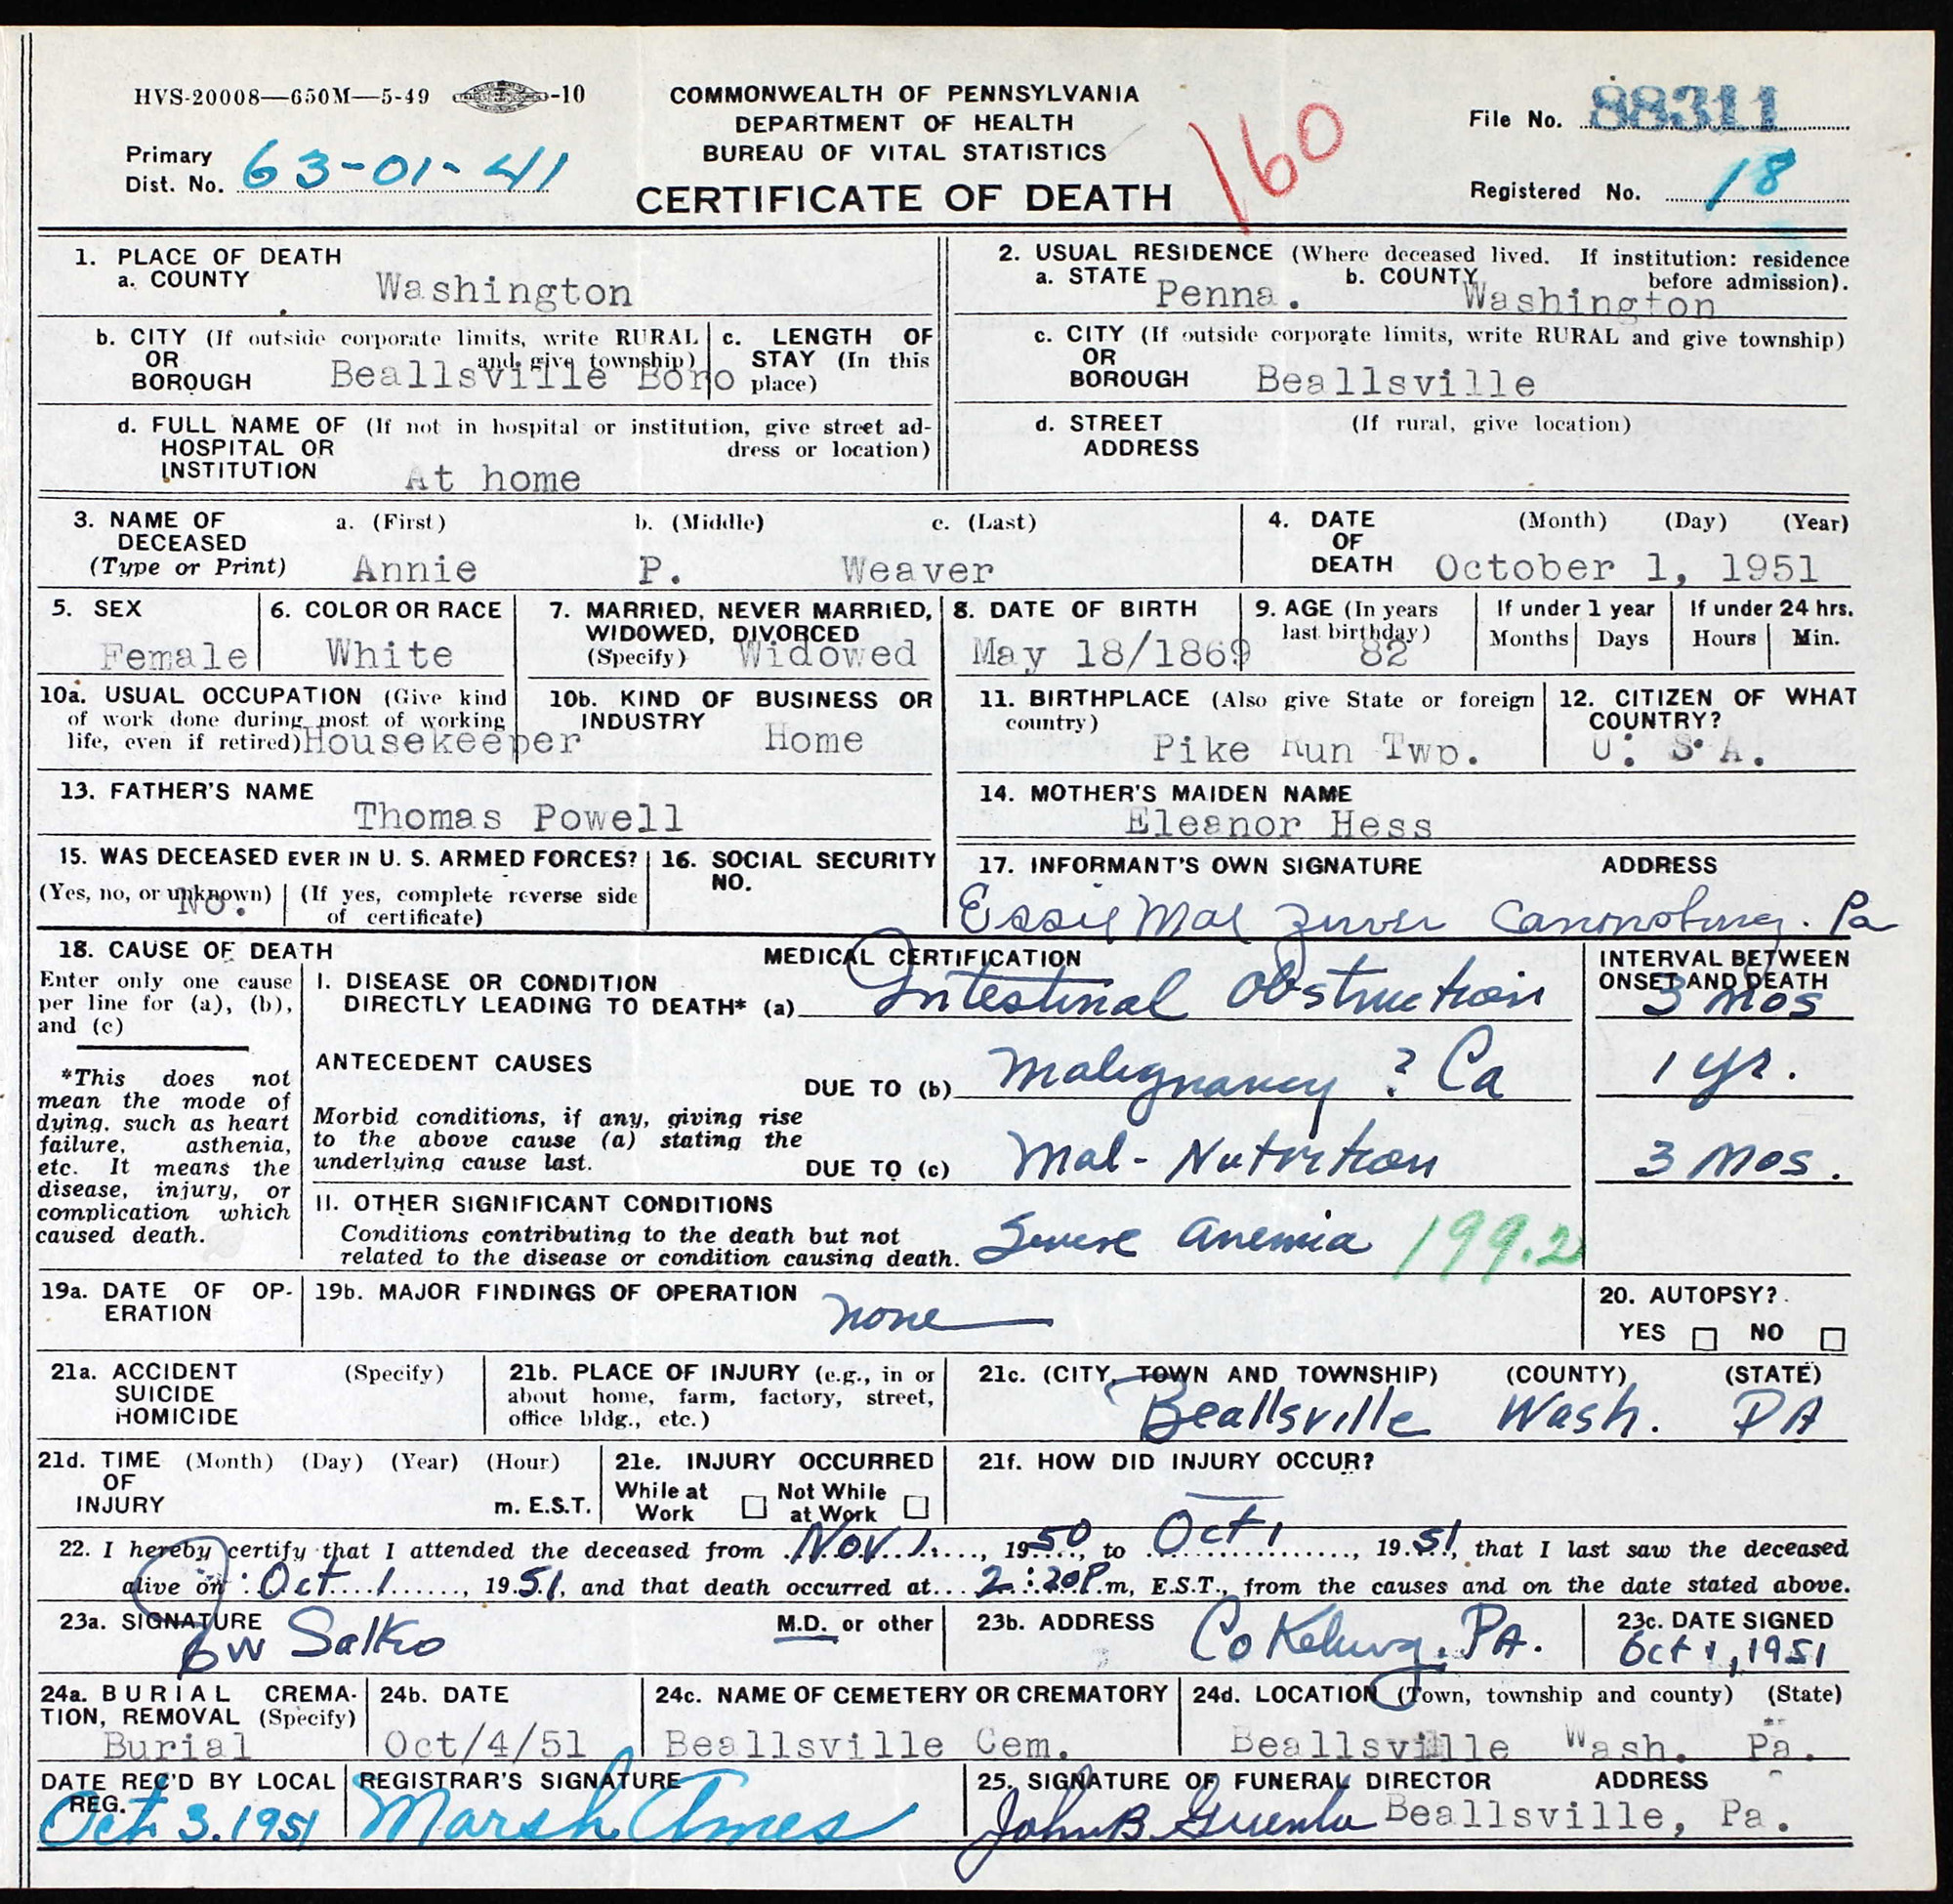 HVS-20008—650M—5-49 -10
COMMONWEALTH OF PENNSYLVANIA
DEPARTMENT OF HEALTH
BUREAU OF VITAL STATISTICS
CERTIFICATE OF DEATH
160
File No. 88311
Primary
Dist. No. 63-01-41
Registered No. 18
1. PLACE OF DEATH
a. COUNTY Washington
2. USUAL RESIDENCE (Where deceased lived. If institution: residence
before admission).
a. STATE Penna. b. COUNTY Washington
b. CITY (If outside corporate limits, write RURAL
OR and give township)
BOROUGH Beallsville Boro
c. LENGTH OF
STAY (In this
place)
c. CITY (If outside corporate limits, write RURAL and give township)
OR
BOROUGH Beallsville
d. FULL NAME OF (If not in hospital or institution, give street ad-
HOSPITAL OR dress or location)
INSTITUTION At home
d. STREET (If rural, give location)
ADDRESS
3. NAME OF a. (First) b. (Middle) c. (Last)
DECEASED
(Type or Print) Annie P. Weaver
4. DATE (Month) (Day) (Year)
OF
DEATH October 1, 1951
5. SEX
Female
6. COLOR OR RACE
White
7. MARRIED, NEVER MARRIED,
WIDOWED, DIVORCED
(Specify) Widowed
8. DATE OF BIRTH
May 18/1869
9. AGE (In years
last birthday)
82
If under 1 year
Months Days
If under 24 hrs.
Hours Min.
10a. USUAL OCCUPATION (Give kind
of work done during most of working
life, even if retired) Housekeeper
10b. KIND OF BUSINESS OR
INDUSTRY
Home
11. BIRTHPLACE (Also give State or foreign
country)
Pike Run Twp.
12. CITIZEN OF WHAT
COUNTRY?
U. S. A.
13. FATHER'S NAME
Thomas Powell
14. MOTHER'S MAIDEN NAME
Eleanor Hess
15. WAS DECEASED EVER IN U. S. ARMED FORCES?
(Yes, no, or unknown) (If yes, complete reverse side
of certificate)
No.
16. SOCIAL SECURITY
NO.
17. INFORMANT'S OWN SIGNATURE ADDRESS
Essie Mae Canonsburg. Pa
18. CAUSE OF DEATH
Enter only one cause
per line for (a), (b),
and (c)
*This does not
mean the mode of
dying, such as heart
failure, asthenia,
etc. It means the
disease, injury, or
complication which
caused death.
MEDICAL CERTIFICATION
INTERVAL BETWEEN
ONSET AND DEATH
I. DISEASE OR CONDITION
DIRECTLY LEADING TO DEATH* (a) Intestinal Obstruction 3 mos
ANTECEDENT CAUSES
DUE TO (b) Malignancy ? Ca 1 yr.
Morbid conditions, if any, giving rise
to the above cause (a) stating the
underlying cause last.
DUE TO (c) Mal-Nutrition 3 Mos.
II. OTHER SIGNIFICANT CONDITIONS
Conditions contributing to the death but not
related to the disease or condition causing death. Severe Anemia 199.2
19a. DATE OF OP-
ERATION
19b. MAJOR FINDINGS OF OPERATION
none
20. AUTOPSY?
YES NO
21a. ACCIDENT (Specify)
SUICIDE
HOMICIDE
21b. PLACE OF INJURY (e.g., in or
about home, farm, factory, street,
office bldg., etc.)
21c. (CITY, TOWN AND TOWNSHIP) (COUNTY) (STATE)
Beallsville Wash. PA
21d. TIME (Month) (Day) (Year) (Hour)
OF
INJURY m. E.S.T.
21e. INJURY OCCURRED
While at Not While
Work at Work
21f. HOW DID INJURY OCCUR?
22. I hereby certify that I attended the deceased from Nov 1, 1950, to Oct 1, 1951, that I last saw the deceased
alive on Oct 1, 1951, and that death occurred at 2:20 P.m, E.S.T., from the causes and on the date stated above.
23a. SIGNATURE M.D. or other
BW Salko
23b. ADDRESS
Cokeburg, PA.
23c. DATE SIGNED
Oct 1, 1951
24a. BURIAL CREMA-
TION, REMOVAL (Specify)
Burial
24b. DATE
Oct/4/51
24c. NAME OF CEMETERY OR CREMATORY
Beallsville Cem.
24d. LOCATION (Town, township and county) (State)
Beallsville Wash. Pa.
DATE REC'D BY LOCAL
REG.
Oct 3. 1951
REGISTRAR'S SIGNATURE
Marsh Ames
25. SIGNATURE OF FUNERAL DIRECTOR ADDRESS
John B. Beallsville, Pa.